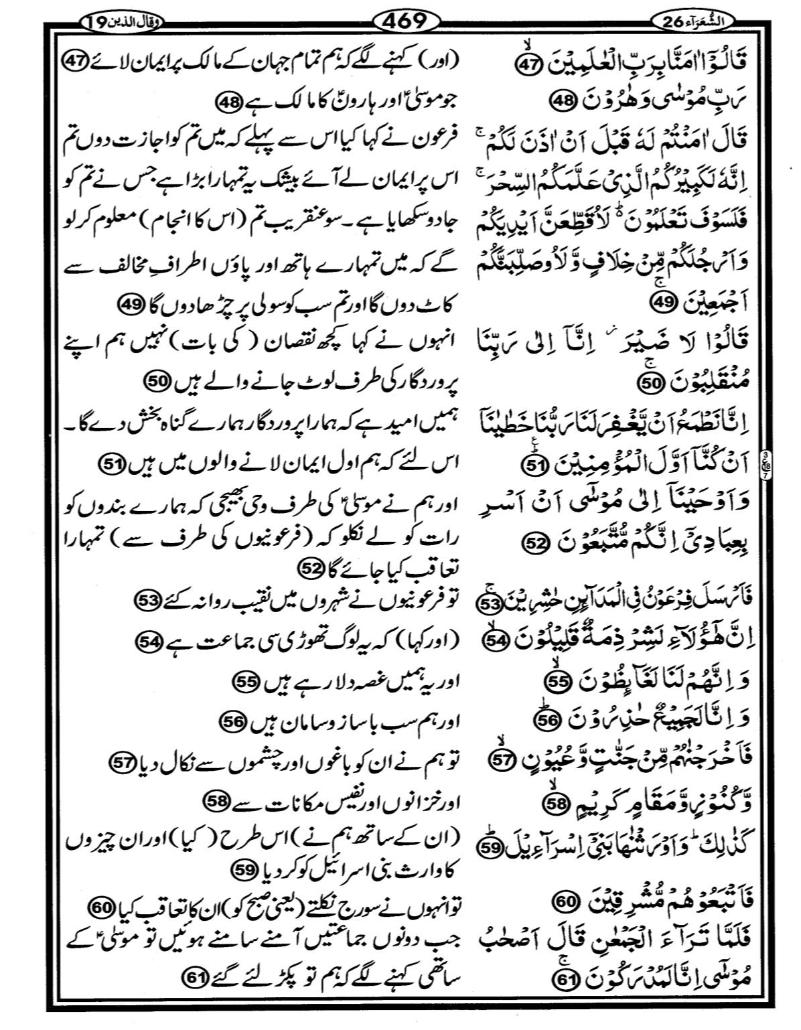 الشُّعَرَآء 26
469
وقال الذین 19
قَالُوْۤا اٰمَنَّا بِرَبِّ الْعٰلَمِیْنَ 47
رَبِّ مُوْسٰى وَهٰرُوْنَ 48
قَالَ اٰمَنْتُمْ لَهٗ قَبْلَ اَنْ اٰذَنَ لَكُمْ ۚ
اِنَّهٗ لَكَبِیْرُكُمُ الَّذِیْ عَلَّمَكُمُ السِّحْرَ ۚ
فَلَسَوْفَ تَعْلَمُوْنَ ؕ لَاُقَطِّعَنَّ اَیْدِیَكُمْ
وَاَرْجُلَكُمْ مِّنْ خِلَافٍ وَّلَاُوصَلِّبَنَّكُمْ
اَجْمَعِیْنَ 49
قَالُوْا لَا ضَیْرَ ؗ اِنَّاۤ اِلٰى رَبِّنَا
مُنْقَلِبُوْنَ 50
اِنَّا نَطْمَعُ اَنْ یَّغْفِرَ لَنَا رَبُّنَا خَطٰیٰنَاۤ
اَنْ كُنَّاۤ اَوَّلَ الْمُؤْمِنِیْنَ 51
وَاَوْحَیْنَاۤ اِلٰى مُوْسٰۤى اَنْ اَسْرِ
بِعِبَادِیْۤ اِنَّكُمْ مُّتَّبَعُوْنَ 52
فَاَرْسَلَ فِرْعَوْنُ فِی الْمَدَآىِٕنِ حٰشِرِیْنَ 53
اِنَّ هٰۤؤُلَآءِ لَشِرْذِمَةٌ قَلِیْلُوْنَ 54
وَاِنَّهُمْ لَنَا لَغَآىِٕظُوْنَ 55
وَاِنَّا لَجَمِیْعٌ حٰذِرُوْنَ 56
فَاَخْرَجْنٰهُمْ مِّنْ جَنّٰتٍ وَّعُیُوْنٍ 57
وَّكُنُوْزٍ وَّمَقَامٍ كَرِیْمٍ 58
كَذٰلِكَ ؕ وَاَوْرَثْنٰهَا بَنِیْۤ اِسْرَآءِیْلَ 59
فَاَتْبَعُوْهُمْ مُّشْرِقِیْنَ 60
فَلَمَّا تَرَآءَ الْجَمْعٰنِ قَالَ اَصْحٰبُ
مُوْسٰۤى اِنَّا لَمُدْرَكُوْنَ 61
(اور) کہنے لگے کہ ہم تمام جہان کے مالک پر ایمان لائے 47
جو موسیٰؑ اور ہارونؑ کا مالک ہے 48
فرعون نے کہا کیا اس سے پہلے کہ میں تم کو اجازت دوں تم
اس پر ایمان لے آئے بیشک یہ تمہارا بڑا ہے جس نے تم کو
جادو سکھایا ہے۔ سو عنقریب تم (اس کا انجام) معلوم کر لو
گے کہ میں تمہارے ہاتھ اور پاؤں اطرافِ مخالف سے
کاٹ دوں گا اور تم سب کو سولی پر چڑھا دوں گا 49
انہوں نے کہا کچھ نقصان (کی بات) نہیں ہم اپنے
پروردگار کی طرف لوٹ جانے والے ہیں 50
ہمیں امید ہے کہ ہمارا پروردگار ہمارے گناہ بخش دے گا۔
اس لئے کہ ہم اول ایمان لانے والوں میں ہیں 51
اور ہم نے موسیٰؑ کی طرف وحی بھیجی کہ ہمارے بندوں کو
رات کو لے نکلو کہ (فرعونیوں کی طرف سے) تمہارا
تعاقب کیا جائے گا 52
تو فرعونیوں نے شہروں میں نقیب روانہ کئے 53
(اور کہا) کہ یہ لوگ تھوڑی سی جماعت ہے 54
اور یہ ہمیں غصہ دلا رہے ہیں 55
اور ہم سب باسازوسامان ہیں 56
تو ہم نے ان کو باغوں اور چشموں سے نکال دیا 57
اور خزانوں اور نفیس مکانات سے 58
(ان کے ساتھ ہم نے) اس طرح (کیا) اور ان چیزوں
کا وارث بنی اسرائیل کو کر دیا 59
تو انہوں نے سورج نکلتے (یعنی صبح کو) ان کا تعاقب کیا 60
جب دونوں جماعتیں آمنے سامنے ہوئیں تو موسیٰؑ کے
ساتھی کہنے لگے کہ ہم تو پکڑ لئے گئے 61